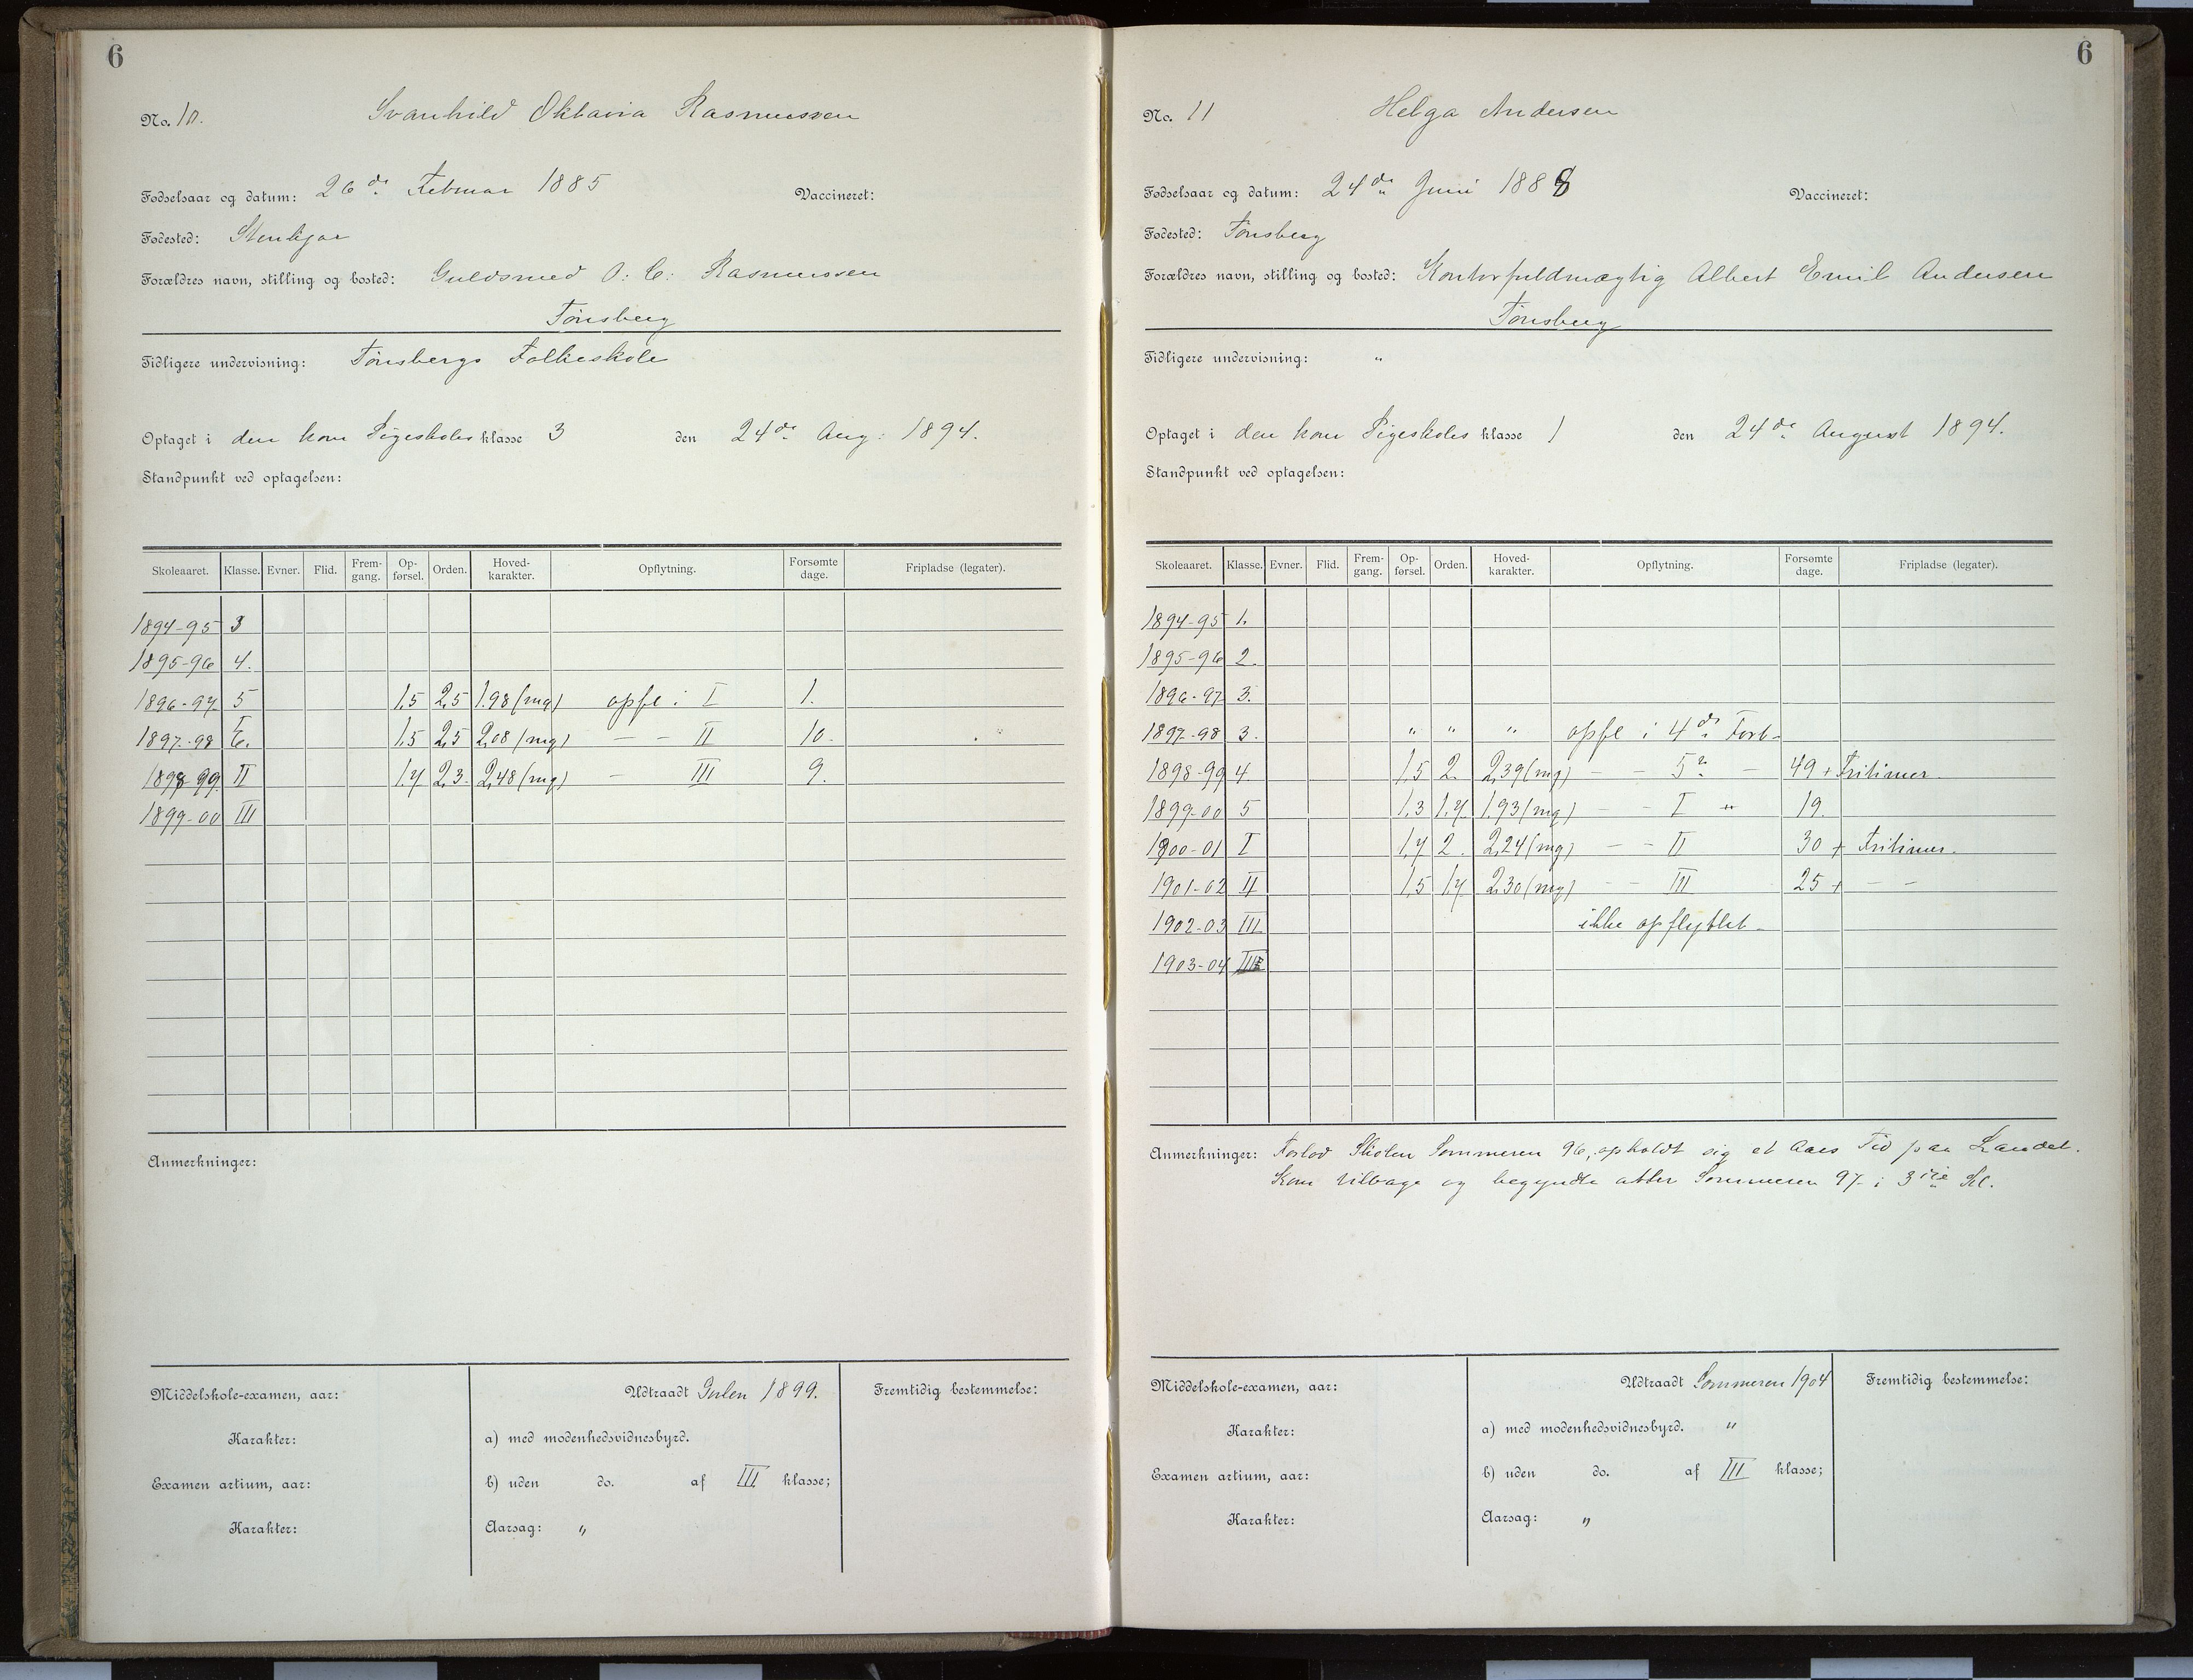 6
No. 10. Svanhild Oktavia Rasmussen
Fødselsaar og datum: 26de Februar 1885 Vaccineret:
Fødested: Stenkjær
Forældres navn, stilling og bosted: Guldsmed O. C. Rasmussen
Tønsberg
Tidligere undervisning: Tønsbergs Folkeskole
Optaget i den kom Pigeskoles klasse 3 den 24de Aug: 1894.
Standpunkt ved optagelsen:
Skoleaaret. Klasse. Evner. Flid. Frem-gang. Op-førsel. Orden. Hoved-karakter. Opflytning. Forsømte dage. Fripladse (legater).
1894-95 3
1895-96 4.
1896-97 5 1,5 2,5 1.98 (mg) opfl i I 1.
1897-98 I 1,5 2,5 2,08 (mg) — — II 10.
1898-99. II 1,7 2,3. 2,48 (mg) — III 9.
1899-00 III
Anmerkninger:
Middelskole-examen, aar: Udtraadt Julen 1899. Fremtidig bestemmelse:
Karakter: a) med modenhedsvidnesbyrd.
Examen artium, aar: b) uden do. af III klasse;
Karakter: Aarsag: "
6
No. 11 Helga Andersen
Fødselsaar og datum: 24de Juni 1888 Vaccineret:
Fødested: Tønsberg
Forældres navn, stilling og bosted: Kontorfuldmægtig Albert Emil Andersen
Tønsberg
Tidligere undervisning: "
Optaget i den kom Pigeskoles klasse 1 den 24de August 1894.
Standpunkt ved optagelsen:
Skoleaaret. Klasse. Evner. Flid. Frem-gang. Op-førsel. Orden. Hoved-karakter. Opflytning. Forsømte dage. Fripladse (legater).
1894-95 1.
1895-96 2.
1896-97 3.
1897-98 3. " " " opfl i 4de Forb.
1898-99 4. 1,5 2. 2,39 (mg) — — 5te — 49 + Fritimer.
1899-00 5 1,3 1,7. 1,93 (mg) — — I " 19.
1900-01 I 1,7 2. 2,24 (mg) — — II 30 + Fritimer.
1901-02 II 1,5 1,7. 2,30 (mg) — — III 25 + — —
1902-03 III ikke opflyttet.
1903-04 III
Anmerkninger: Forlod Skolen Sommeren 96, opholdt sig et Aars Tid paa Landet.
Kom tilbage og begyndte atter Sommeren 97 i 3die Kl.
Middelskole-examen, aar: Udtraadt Sommeren 1904 Fremtidig bestemmelse:
Karakter: a) med modenhedsvidnesbyrd. "
Examen artium, aar: b) uden do. af III klasse;
Karakter: Aarsag: "